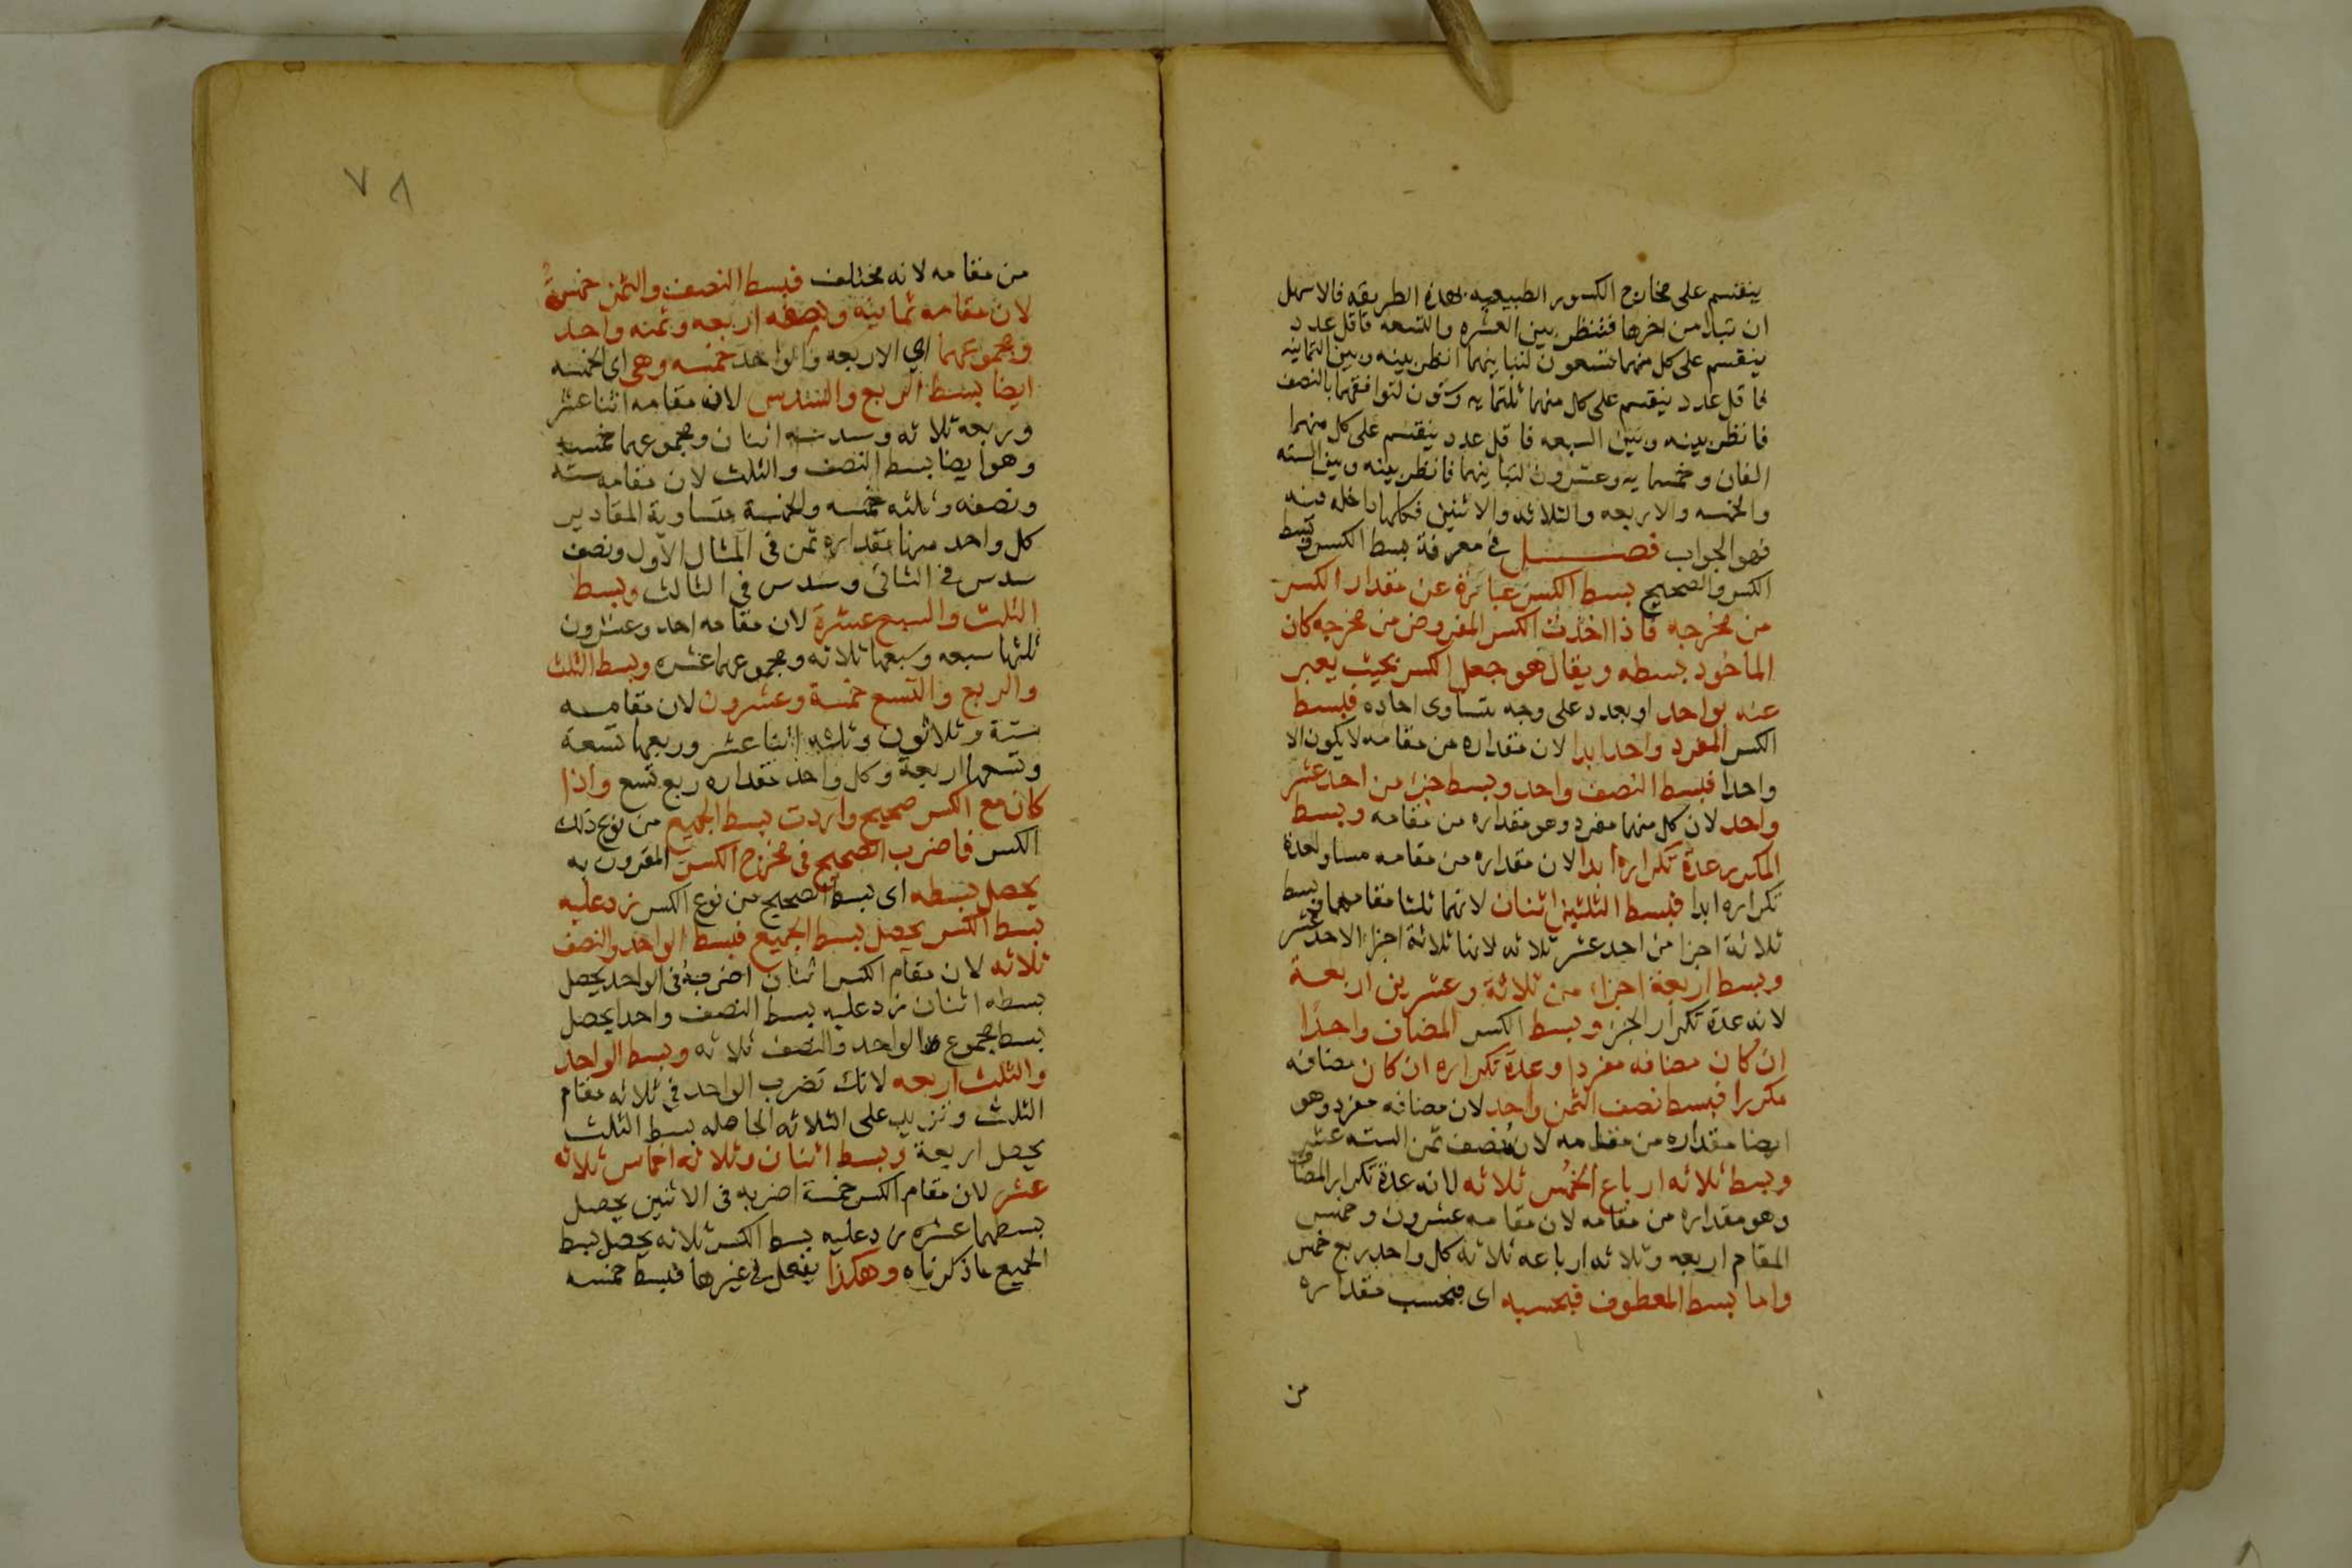 ينقسم على مخارج الكسور الطبيعيه بهذه الطريقه فالاسهل
ان تبدا من اخرها فتنظر بين العشره والتسعه فاقل عدد
ينقسم على كل منهما تسعون لتباينهما انظر بينه وبين الثمانيه
فاقل عدد ينقسم على كل منهما ثلثمايه وستون لتوافقهما بالنصف
فانظر بينه وبين السبعه فاقل عدد ينقسم على كل منهما
الفان وخمسمايه وعشرون لتباينهما فانظر بينه وبين السته
والخمسه والاربعه والثلاثه والاثنين فكلها داخله فيه
فهو الجواب فصل في معرفة بسط الكسر وبسط
الكسر والصحيح بسط الكسر عبارة عن مقدار الكسر
من مخرجه فاذا اخذت الكسر المفروض من مخرجه كان
الماخوذ بسطه ويقال هو جعل الكسر بحيث يعبر
عنه بواحد او بعدد على وجه تتساوى احاده فبسط
الكسر المفرد واحد ابدا لان مقداره من مقامه لا يكون الا
واحدا فبسط النصف واحد وبسط جزء من احد عشر
واحد لان كل منهما مفرد وهو مقداره من مقامه وبسط
المكرر عدة تكراره ابدا لان مقداره من مقامه مساو لعدة
تكراره ابدا فبسط الثلثين اثنان لانهما ثلثا مقامهما وبسط
ثلاثة اجزا من احد عشر ثلاثه لانها ثلاثة اجزاء الاحد عشر
وبسط اربعة اجزاء من ثلاثة وعشرين اربعة
لانه عدة تكرار الجزء وبسط الكسر المضاف واحدًا
ان كان مضافه مفردا وعدة تكراره ان كان مضافه
مكررا فبسط نصف الثمن واحد لان مضافه مفرد وهو
ايضا مقداره من مقامه لان نصف ثمن السته عشر
وبسط ثلاثه ارباع الخمس ثلاثه لانه عدة تكرار المضاف
وهو مقداره من مقامه لان مقامه عشرون وخمس
المقام اربعه وثلاثه ارباعه ثلاثة كل واحد ربع خمس
واما بسط المعطوف فبحسبه اى فبحسب مقداره
من
٧٨
من مقامه لانه مختلف فبسط النصف والثمن خمسة
لان مقامه ثمانيه ونصفه اربعه وثمنه واحد
ومجموعهما اي الاربعه والواحد خمسه وهى اى الخمسه
ايضا بسط الربع والسدس لان مقامه اثنا عشر
وربعه ثلاثه وسدسه اثنان ومجموعهما خمسه
وهو ايضا بسط النصف والثلث لان مقامه سته
ونصفه وثلثه خمسه والخمسة متساوية المقادير
كل واحد منها مقداره ثمن فى المثال الاول ونصف
سدس في الثانى وسدس فى الثالث وبسط
الثلث والسبع عشرة لان مقامه احد وعشرون
ثلثها سبعه وسبعها ثلاثه ومجموعهما عشره وبسط الثلث
والربع والتسع خمسة وعشرون لان مقامه
ستة وثلاثون وثلثه اثنا عشر وربعها تسعة
وتسعها اربعة وكل واحد مقداره ربع تسع واذا
كان مع الكسر صحيح واردت بسط الجميع من نوع ذلك
الكسر فاضرب الصحيح فى مخرج الكسر المقرون به
يحصل بسطه اى بسط الصحيح من نوع الكسر زد عليه
بسط الكسر يحصل بسط الجميع فبسط الواحد والنصف
ثلاثه لان مقام الكسر اثنان اضربه فى الواحد يحصل
بسطه اثنان زد عليه بسط النصف واحدا يحصل
بسط مجموع الواحد والنصف ثلاثه وبسط الواحد
والثلث اربعه لانك تضرب الواحد في ثلاثه مقام
الثلث وتزيد على الثلاثه الحاصله بسط الثلث
يحصل اربعة وبسط اثنان وثلاثه اخماس ثلاثه
عشر لان مقام الكسر خمسة اضربه فى الاثنين يحصل
بسطهما عشره زد عليه بسط الكسر ثلاثه يحصل بسط
الجميع ماذكرناه وهكذا يفعل في غيرها فبسط خمسه